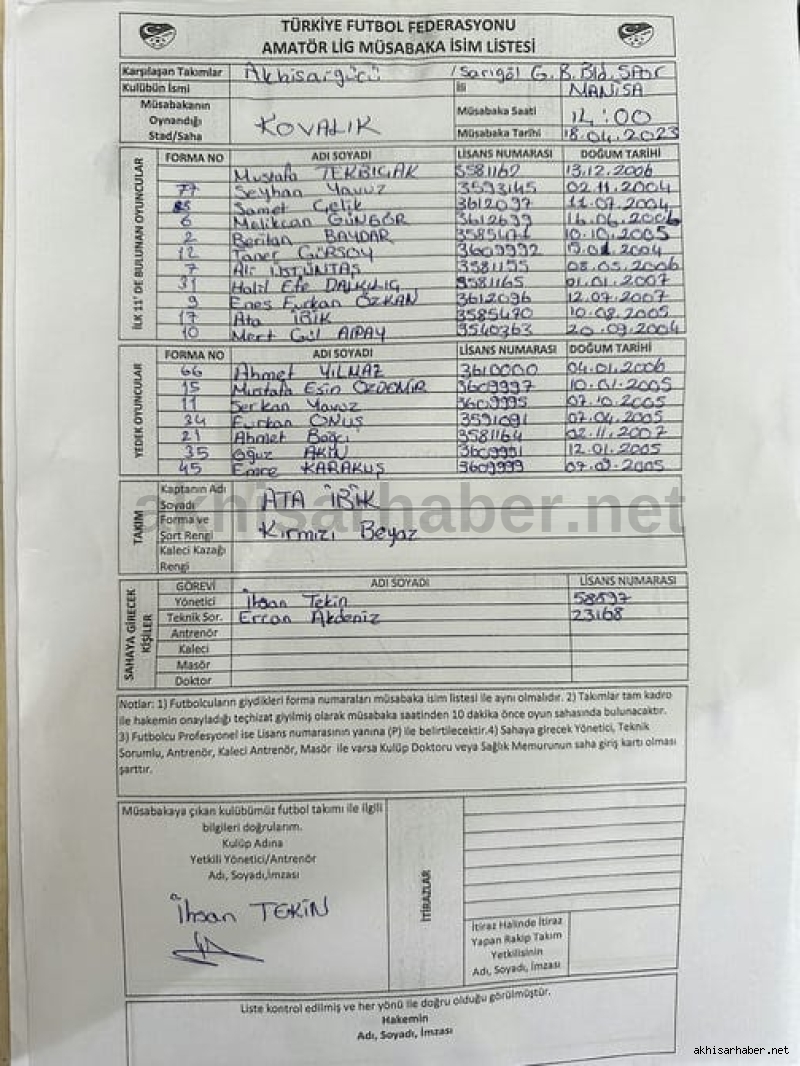 TÜRKİYE FUTBOL FEDERASYONU
AMATÖR LİG MÜSABAKA İSİM LİSTESİ
Karşılaşan Takımlar Akhisargücü / Sarıgöl G.B.Bld.SPor
Kulübün İsmi İli MANİSA
Müsabakanın Oynandığı Stad/Saha KOVALIK Müsabaka Saati 14:00
Müsabaka Tarihi 18.04.2023
İLK 11' DE BULUNAN OYUNCULAR
FORMA NO ADI SOYADI LİSANS NUMARASI DOĞUM TARİHİ
Mustafa TEKBIÇAK 3581162 13.12.2006
77 Seyhan Yavuz 3593145 02.11.2004
Samet Çelik 3612097 11.07.2004
6 Melikcan GÜNGÖR 3612699 16.06.2006
2 Berilan BAYDAR 10.10.2005
12 Taner GÜRSOY 3609992
7 Ali ÜSTÜNTAŞ 3581155 08.05.2006
31 Halil Efe DALKILIÇ 3581165 01.01.2007
9 Enes Furkan ÖZKAN 3612096 12.07.2007
17 Ata İBİK 3585470 10.08.2005
10 Mert Gül APAY 3540363 20.09.2004
YEDEK OYUNCULAR
FORMA NO ADI SOYADI LİSANS NUMARASI DOĞUM TARİHİ
66 Ahmet YILMAZ 3610000 04.01.2006
15 Mustafa ÖZDEMİR 3609997 10.01.2005
11 Serkan Yavuz 3609995 07.10.2005
34 Furkan ONUŞ 3591091 07.04.2005
21 Ahmet Bağcı 3581164 02.11.2007
35 Oğuz AKIN 3609991 12.01.2005
45 Emre KARAKUŞ 3609999
TAKIM
Kaptanın Adı Soyadı ATA İBİK
Forma ve Şort Rengi Kırmızı Beyaz
Kaleci Kazağı Rengi
SAHAYA GİRECEK KİŞİLER
GÖREVİ ADI SOYADI LİSANS NUMARASI
Yönetici İhsan Tekin 58897
Teknik Sor. Ercan Akdeniz 23168
Antrenör
Kaleci
Masör
Doktor
Notlar: 1) Futbolcuların giydikleri forma numaraları müsabaka isim listesi ile aynı olmalıdır. 2) Takımlar tam kadro
ile hakemin onayladığı teçhizat giyilmiş olarak müsabaka saatinden 10 dakika önce oyun sahasında bulunacaktır.
3) Futbolcu Profesyonel ise Lisans numarasının yanına (P) ile belirtilecektir.4) Sahaya girecek Yönetici, Teknik
Sorumlu, Antrenör, Kaleci Antrenör, Masör ile varsa Kulüp Doktoru veya Sağlık Memurunun saha giriş kartı olması
şarttır.
Müsabakaya çıkan kulübümüz futbol takımı ile ilgili
bilgileri doğrularım.
Kulüp Adına
Yetkili Yönetici/Antrenör
Adı, Soyadı,İmzası
İhsan TEKİN
İTİRAZLAR
İtiraz Halinde İtiraz
Yapan Rakip Takım
Yetkilisinin
Adı, Soyadı, İmzası
Liste kontrol edilmiş ve her yönü ile doğru olduğu görülmüştür.
Hakemin
Adı, Soyadı, İmzası
akhisarhaber.net
akhisarhaber.net